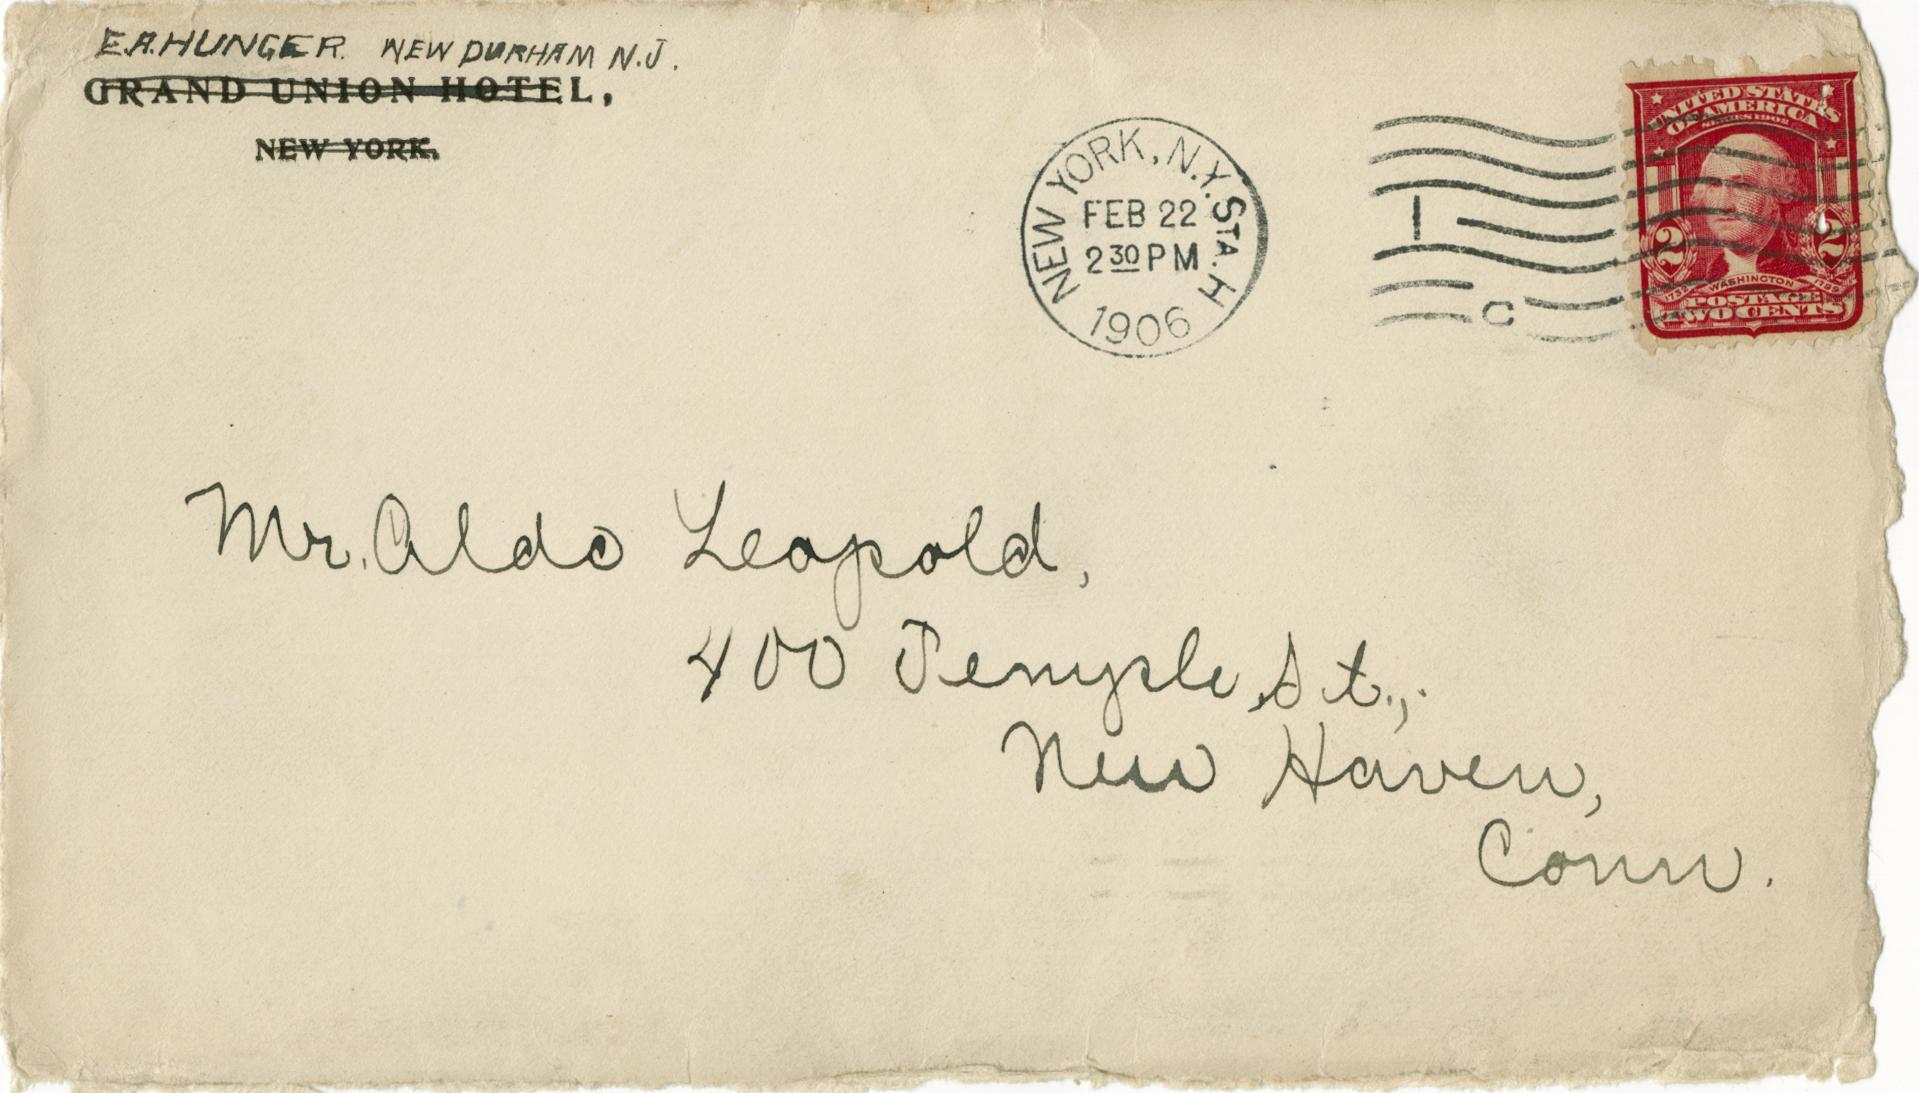 E.A. HUNGER. NEW DURHAM N.J.
GRAND UNION HOTEL,
NEW YORK.
NEW YORK, N.Y. STA. H
FEB 22
2 30 PM
1906
1
C
UNITED STATES
OF AMERICA
SERIES 1902
2 2
1732 WASHINGTON 1799
POSTAGE
TWO CENTS
Mr. Aldo Leopold,
400 Temple St.,
New Haven,
Conn.